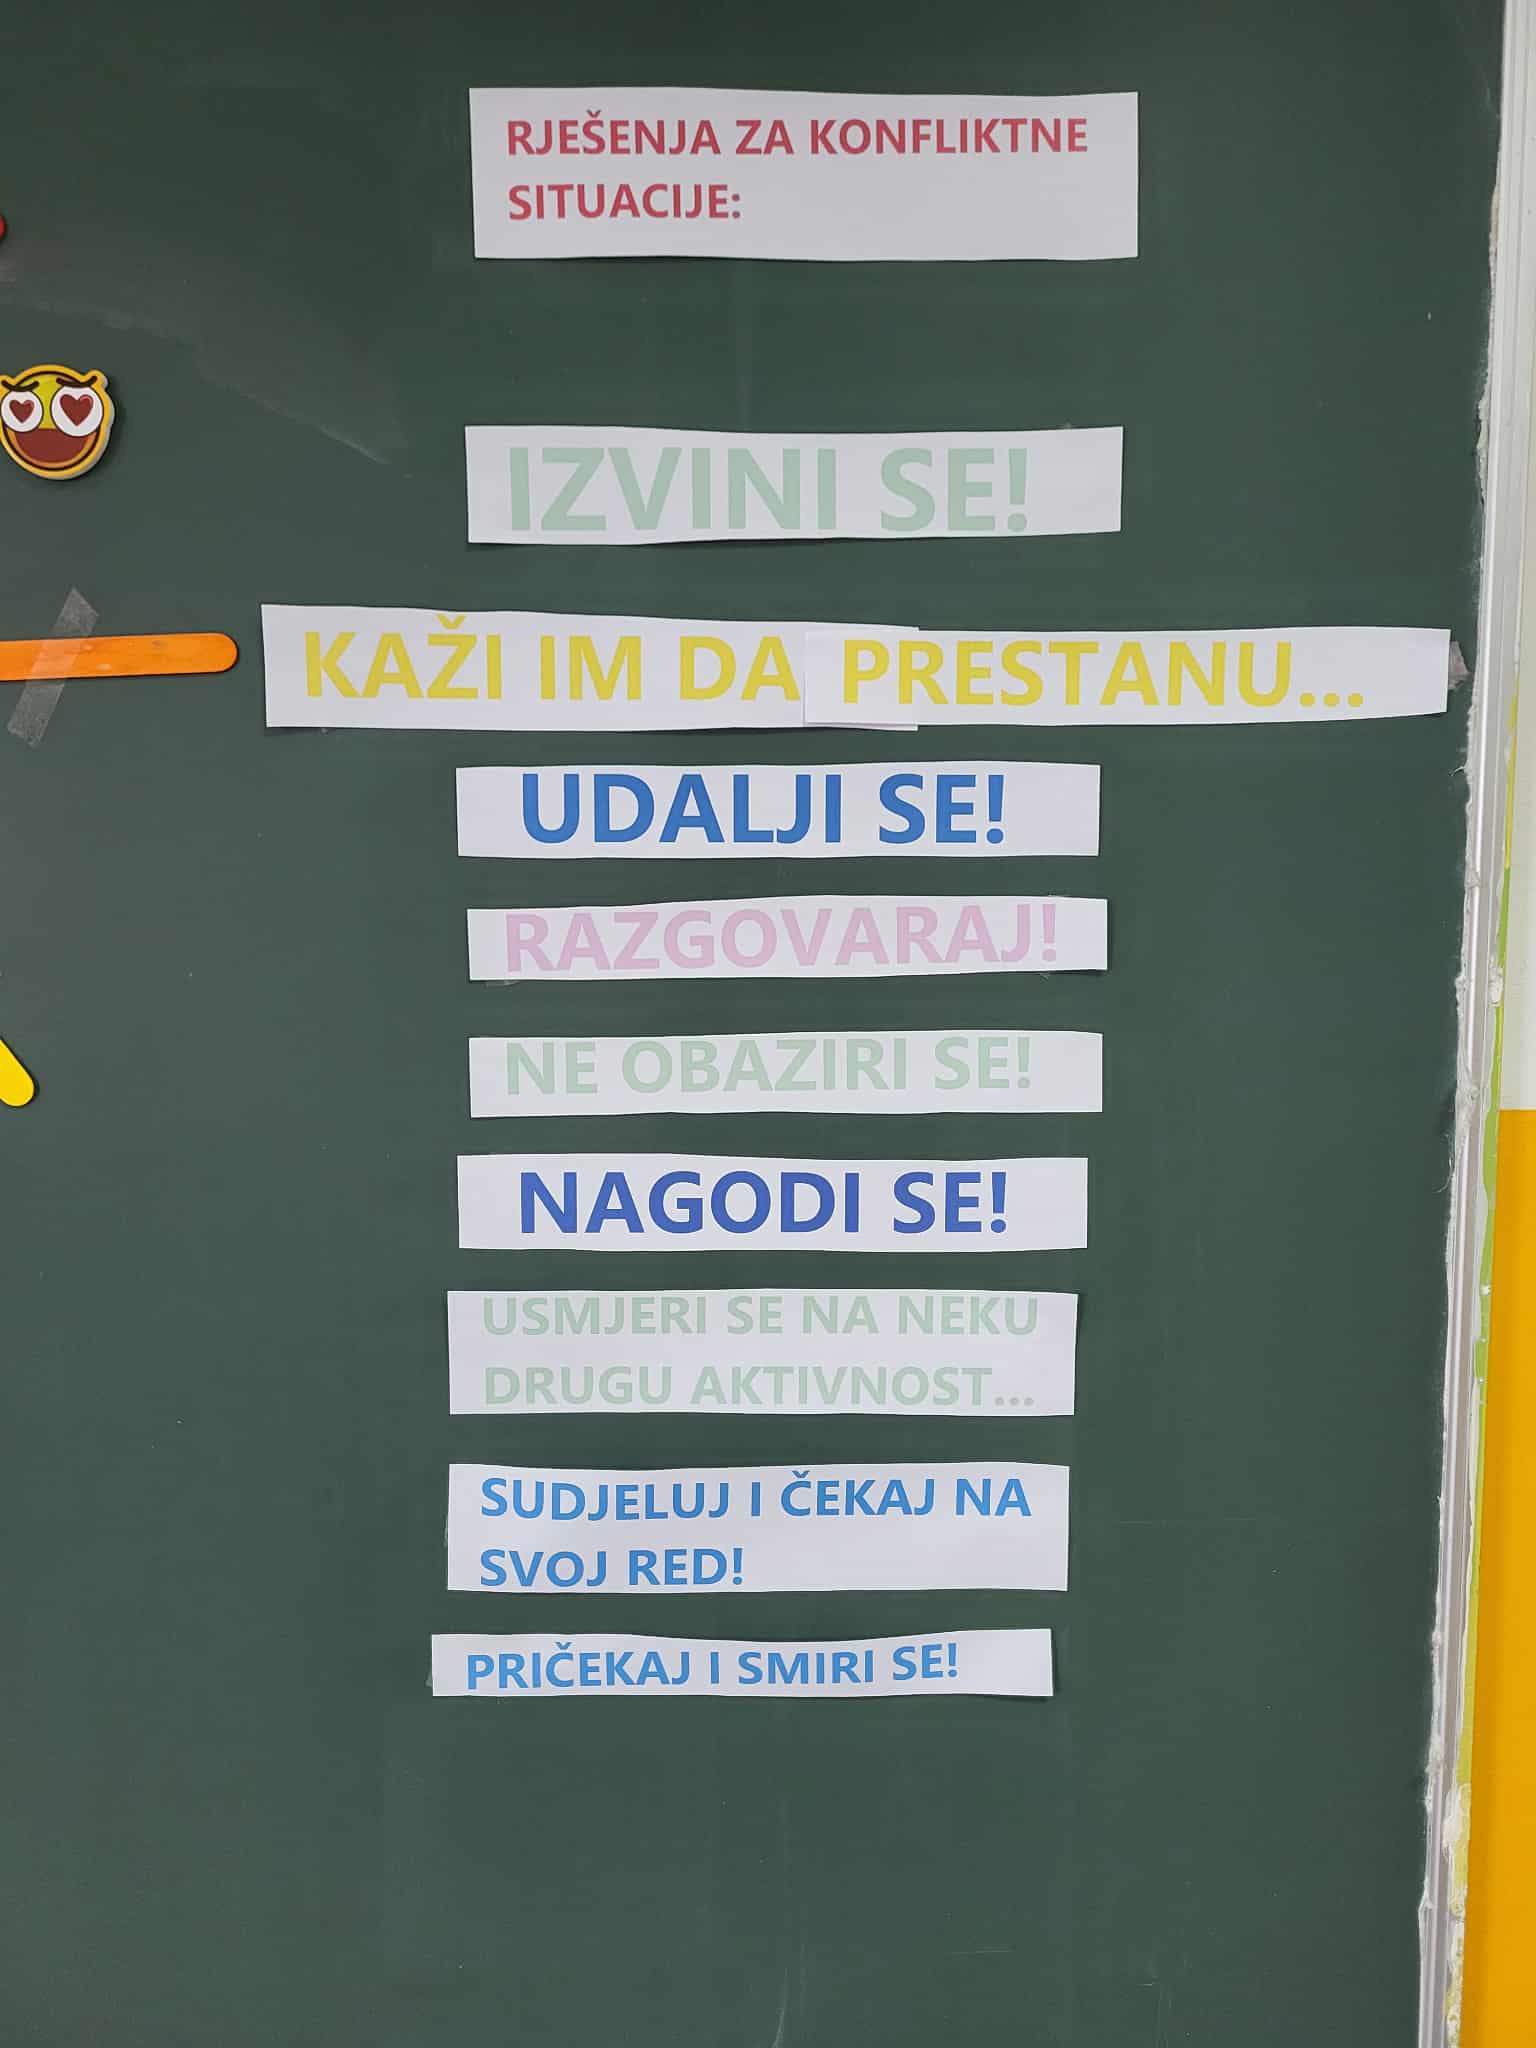 RJEŠENJA ZA KONFLIKTNE
SITUACIJE:
IZVINI SE!
KAŽI IM DA PRESTANU...
UDALJI SE!
RAZGOVARAJ!
NE OBAZIRI SE!
NAGODI SE!
USMJERI SE NA NEKU
DRUGU AKTIVNOST...
SUDJELUJ I ČEKAJ NA
SVOJ RED!
PRIČEKAJ I SMIRI SE!